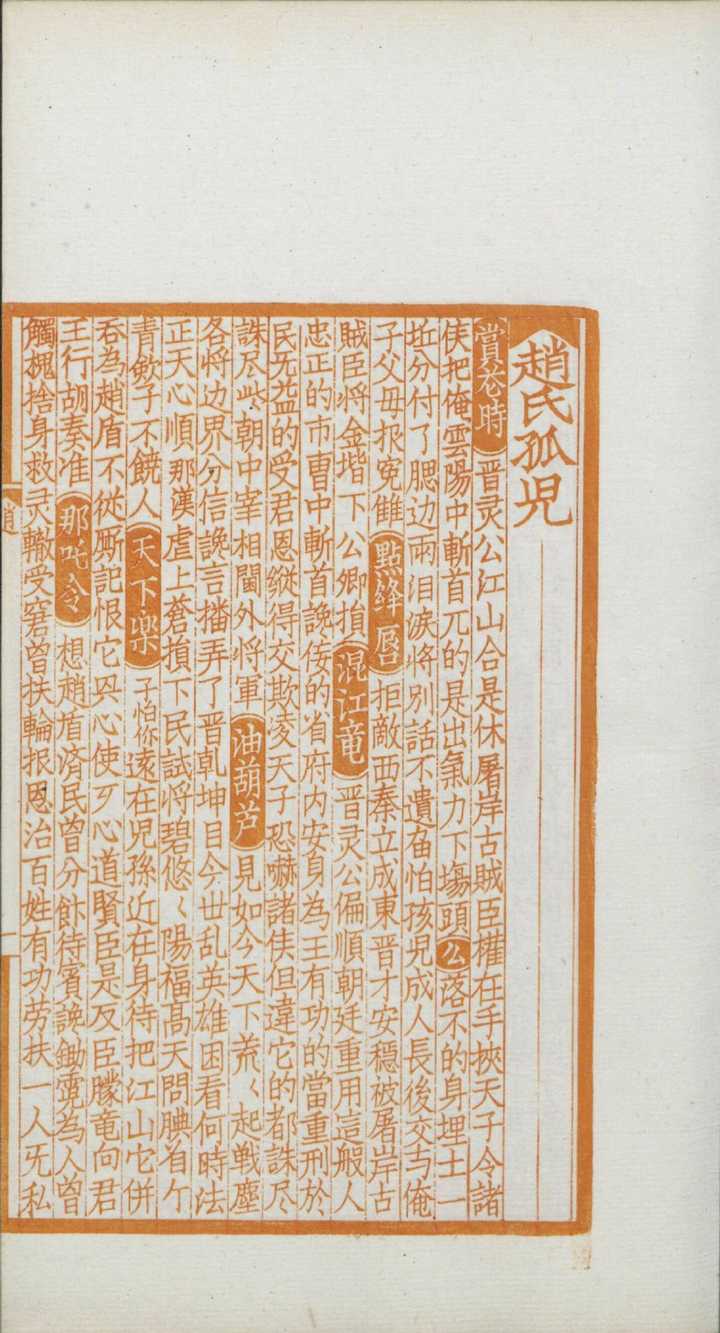 趙氏孤児
賞花時 晋灵公江山合是休屠岸古賊臣權在手挾天子令諸
侯把俺雲陽中斬首兀的是出氣力下塲頭 幺 落不的身埋土一
坵分付了腮边兩泪淚將別話不遺留怕孩児成人長後交与俺
子父毋报寃雠 點絳唇 拒敵西秦立成東晋才安穩被屠岸古
賊臣將金堦下公卿損 混江竜 晋灵公偏順朝廷重用這般人
忠正的市曺中斬首讒佞的省府内安身為王有功的當重刑於
民旡益的受君恩縱得交欺凌天子恐嚇諸侯但違它的都誅尽
誅尽些朝中宰相閫外将軍 油葫芦 見如今天下荒〱起戦塵
各将边界分信讒言播弄了晋乾坤目今丗乱英雄困看何時法
正天心順那漢虐上蒼損下民試将碧悠〱陽福髙天問腆着个
青歛子不饒人 天下楽 子怕你遠在児孫近在身待把江山它併
吞為趙盾不從厮記恨它㓙心使歹心道賢臣是反臣朦竜向君
王行胡奏准 那吒令 想趙盾済民曽分飰待賓讒鋤霓為人曽
觸槐捨身救灵輙受窘曽扶輪报恩治百姓有功劳扶一人旡私
趙